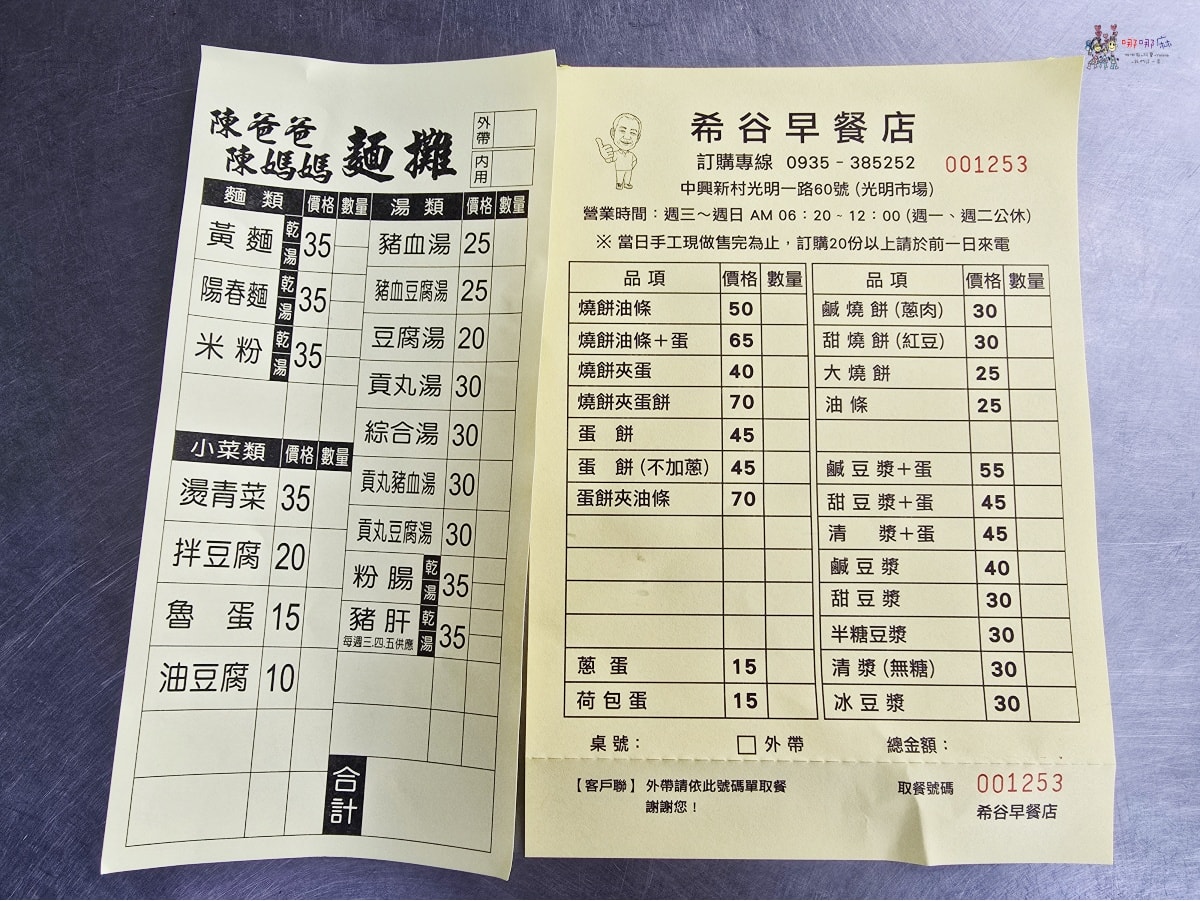 哪哪麻
陳爸爸
陳媽媽 麵攤
外帶
內用
麵類 價格 數量
黃麵 乾 湯 35
陽春麵 乾 湯 35
米粉 乾 湯 35
小菜類 價格 數量
燙青菜 35
拌豆腐 20
魯蛋 15
油豆腐 10
湯類 價格 數量
豬血湯 25
豬血豆腐湯 25
豆腐湯 20
貢丸湯 30
綜合湯 30
貢丸豬血湯 30
貢丸豆腐湯 30
粉腸 乾 湯 35
豬肝 乾 湯 35
每週三.四.五供應
合計
希谷早餐店
訂購專線 0935-385252 001253
中興新村光明一路60號(光明市場)
營業時間:週三~週日 AM 06:20~12:00(週一、週二公休)
※ 當日手工現做售完為止,訂購20份以上請於前一日來電
品項 價格 數量
燒餅油條 50
燒餅油條+蛋 65
燒餅夾蛋 40
燒餅夾蛋餅 70
蛋餅 45
蛋餅(不加蔥) 45
蛋餅夾油條 70
蔥蛋 15
荷包蛋 15
品項 價格 數量
鹹燒餅(蔥肉) 30
甜燒餅(紅豆) 30
大燒餅 25
油條 25
鹹豆漿+蛋 55
甜豆漿+蛋 45
清漿+蛋 45
鹹豆漿 40
甜豆漿 30
半糖豆漿 30
清漿(無糖) 30
冰豆漿 30
桌號: □外帶 總金額:
【客戶聯】外帶請依此號碼單取餐
謝謝您!
取餐號碼 001253
希谷早餐店